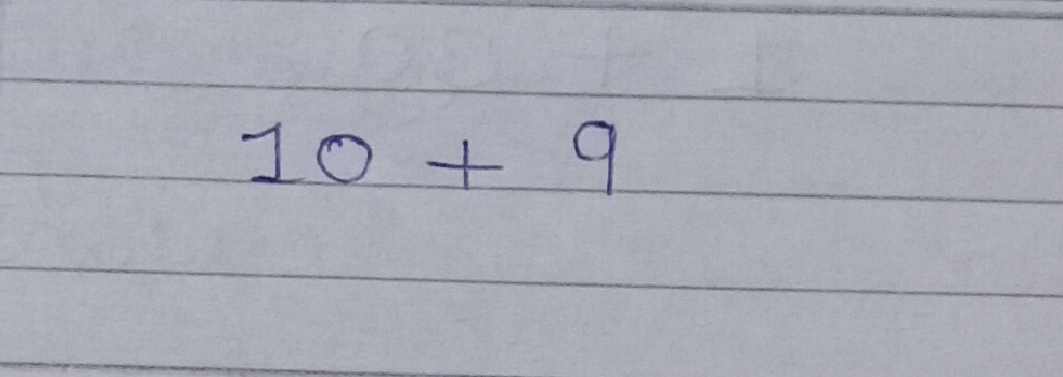 10 + 9